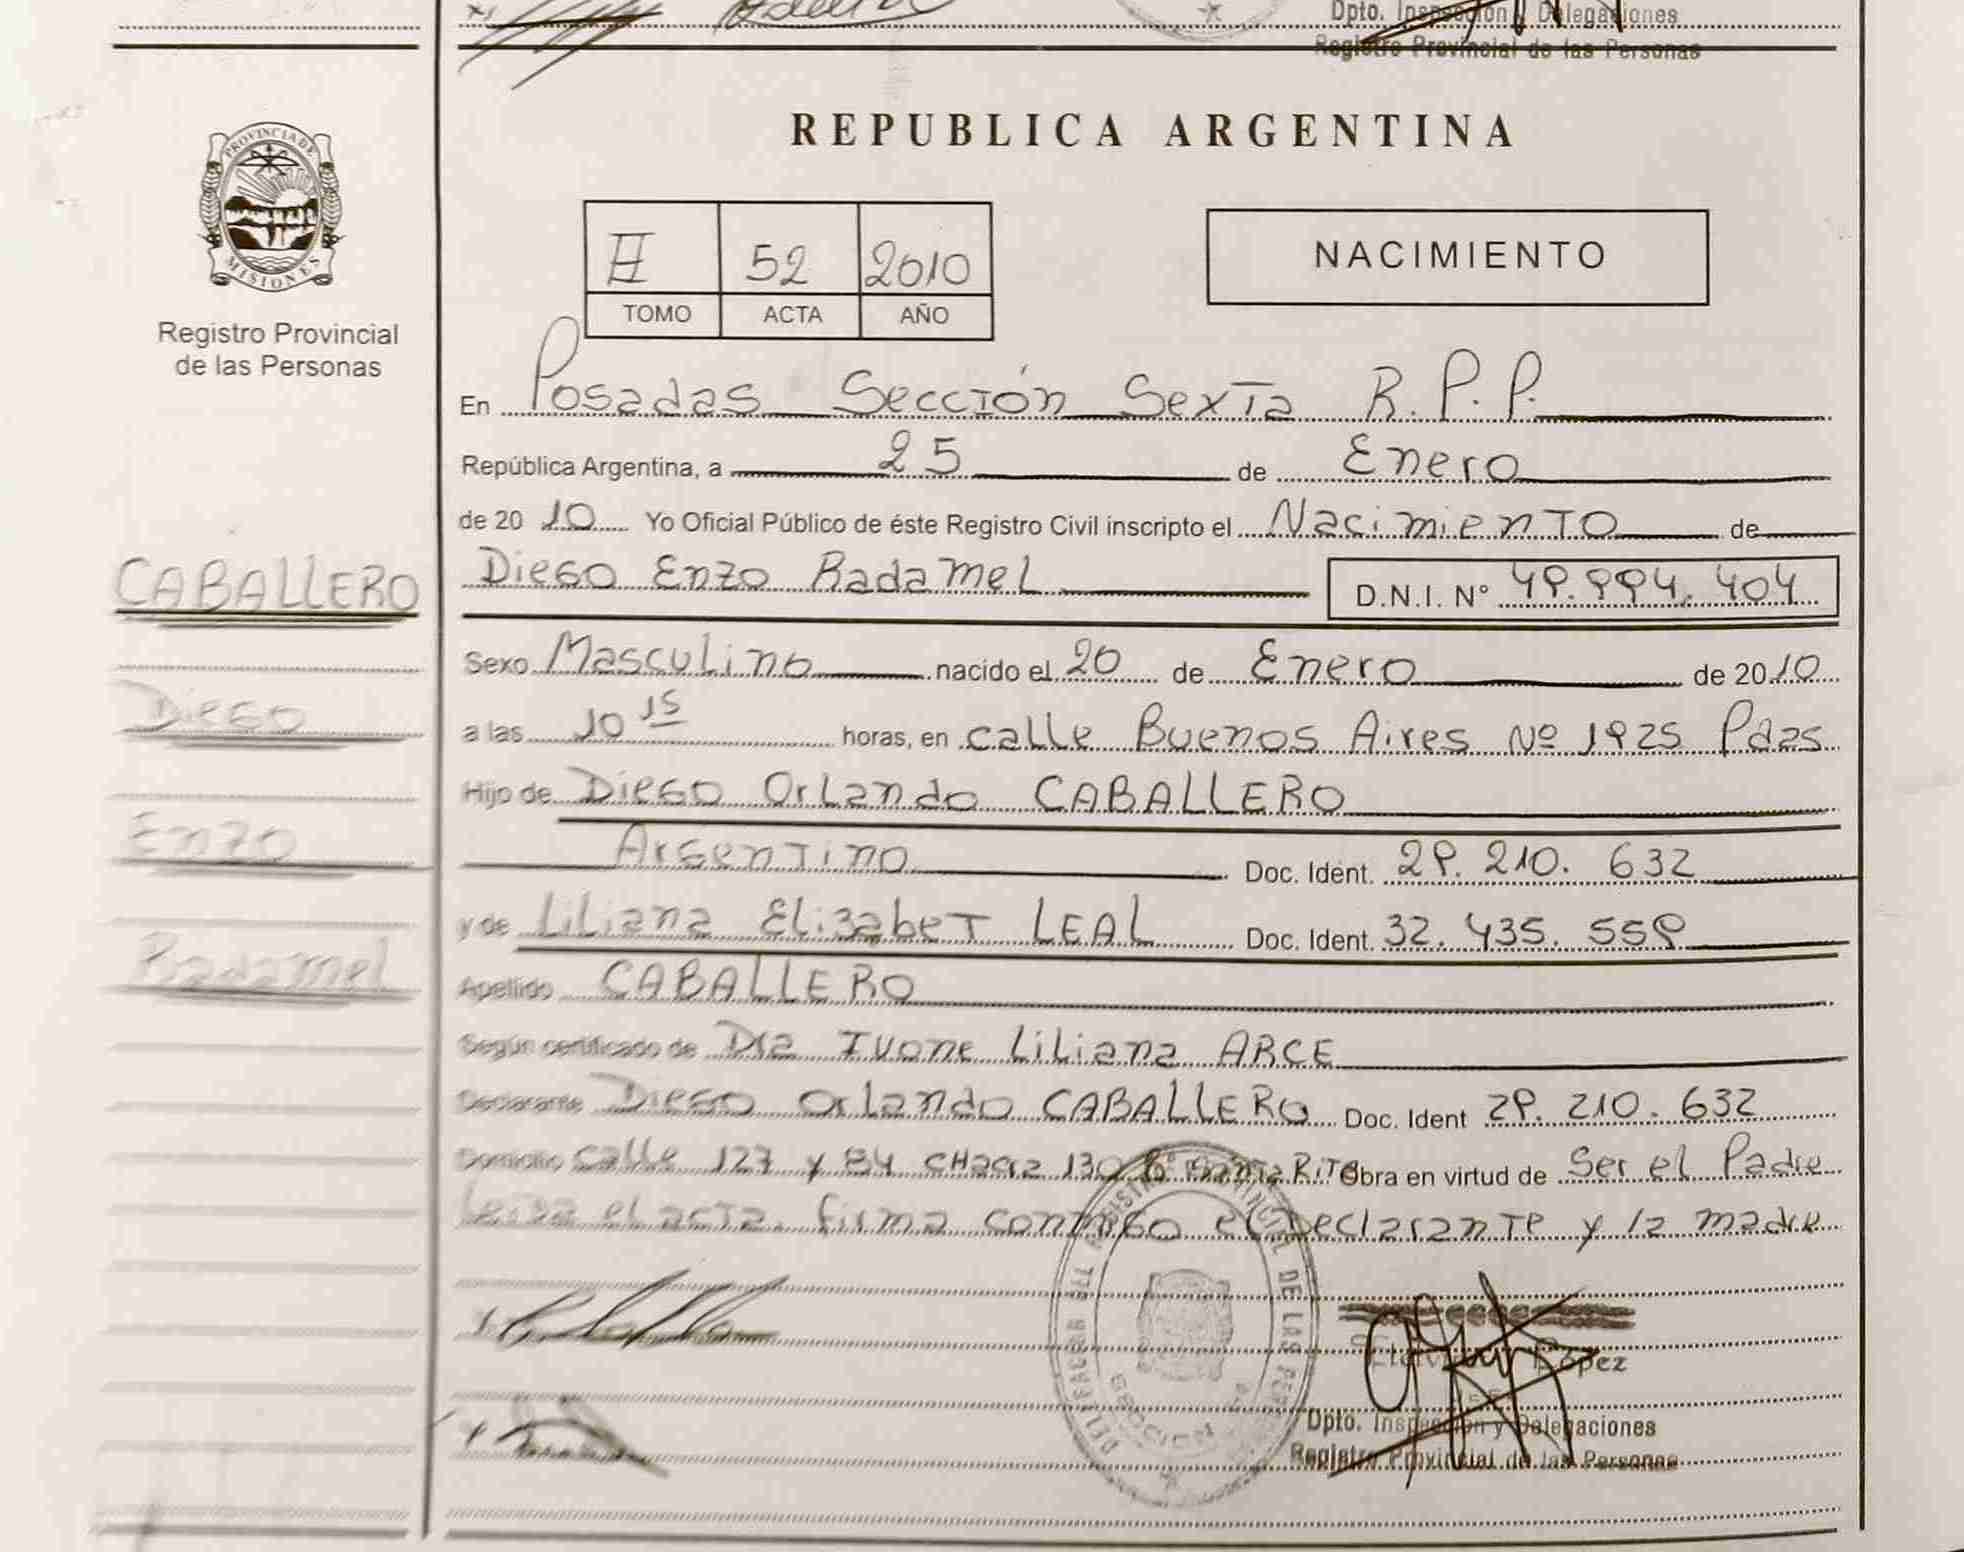 Dpto. Inspección y Delegaciones
Registro Provincial de las Personas
PROVINCIA DE
MISIONES
Registro Provincial
de las Personas
REPUBLICA ARGENTINA
II 52 2010
TOMO ACTA AÑO
NACIMIENTO
En Posadas Sección Sexta R.P.P.
República Argentina, a 25 de Enero
de 20 10 Yo Oficial Público de éste Registro Civil inscripto el Nacimiento de
CABALLERO
Diego
Enzo
Radamel
Diego Enzo Radamel D.N.I. Nº 49.994.404
Sexo Masculino nacido el 20 de Enero de 2010
a las 10 15 horas, en calle Buenos Aires Nº 1925 Pdas
Hijo de Diego Orlando CABALLERO
Argentino Doc. Ident. 29.210.632
y de Liliana Elizabet LEAL Doc. Ident. 32.435.559
Apellido CABALLERO
Según certificado de Dra Ivone Liliana ARCE
Declarante Diego Orlando CABALLERO Doc. Ident 29.210.632
Domicilio calle 127 y 84 CHacra 130 Bº Santa RiTa Obra en virtud de Ser el Padre
Leida el acta, firma conmigo el Declarante y la madre
López
Dpto. Inspección y Delegaciones
Registro Provincial de las Personas